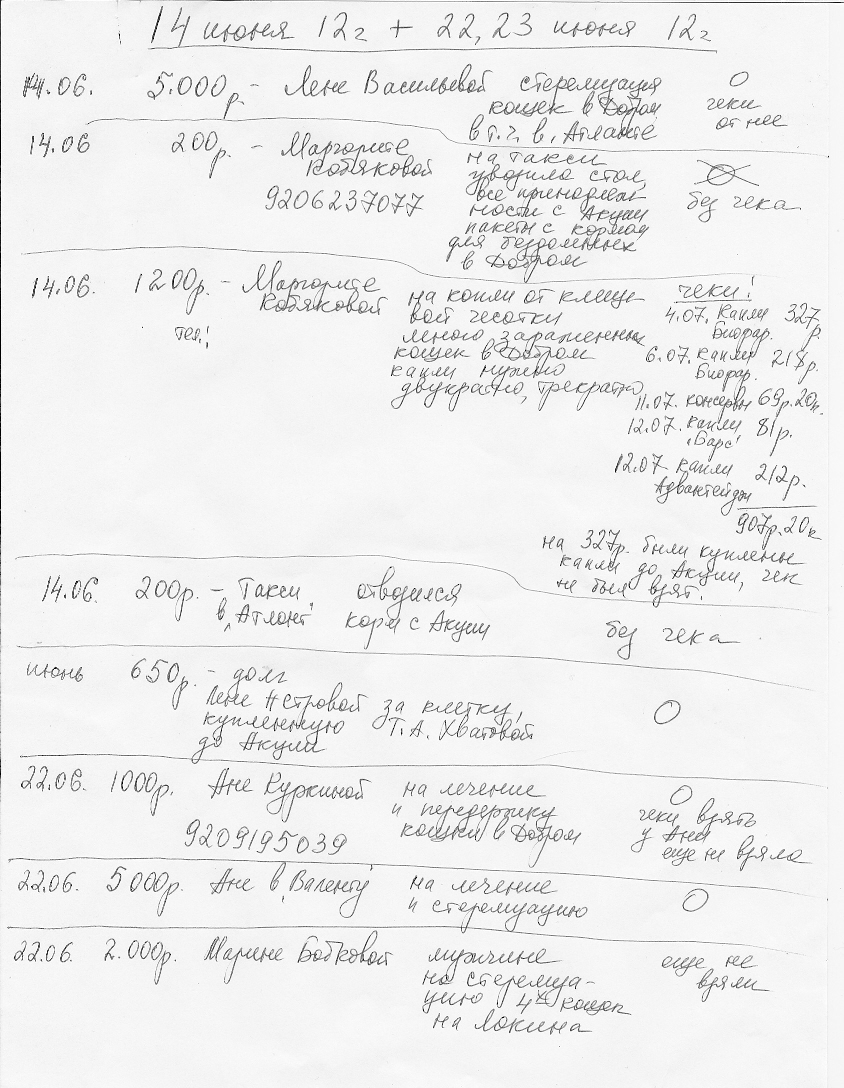 14 июня 12г + 22, 23 июня 12г
14.06. 5.000р. - Лене Васильевой стерелизация О
кошек в Добром чеки
в т.ч. в "Атланте" от нее
14.06 200р. - Маргорите на такси
Кобяковой увозила стол,
9206237077 все принадлеж без чека
ности с Акции
пакеты с кормом
для бездомных
в Добром
14.06. 1200р. - Маргорите на капли от клеще чеки!
Кобяковой вой чесотки 4.07. Капли 327р.
тел.! много зараженных Биофар.
кошек в Добром 6.07. капли 218р.
капли нужно Биофар.
двукратно, трекратно 11.07. консервы 69р.20к.
12.07. капли 81р.
"Барс"
12.07 капли 212р.
Адвантейдж
907р.20к
на 327р. были куплены
капли до Акции, чек
не был взят.
14.06. 200р. - Такси отводился
в "Атлант" корм с Акции без чека
июнь 650р. - долг
Лене за клетку, О
купленную Т.А. Хватовой
до Акции
22.06. 1000р. Ане Куркиной на лечение О
и передержку чеки взять
9209195039 кошки в Добром у Ани
еще не взяла
22.06. 5000р. Ане в "Валенту" на лечение О
и стерелизацию
22.06. 2.000р. Марине Бобковой мужчине еще не
на стерелиза- взяли
цию 4х кошек
на Локина